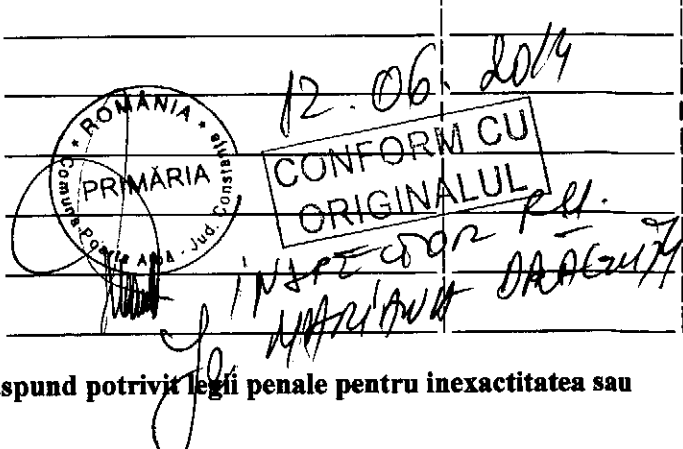 12.06.2014
* ROMÂNIA *
PRIMĂRIA
Comuna Poarta Albă - Jud. Constanța
CONFORM CU
ORIGINALUL
INSPECTOR
MARIANA
spund potrivit legii penale pentru inexactitatea sau